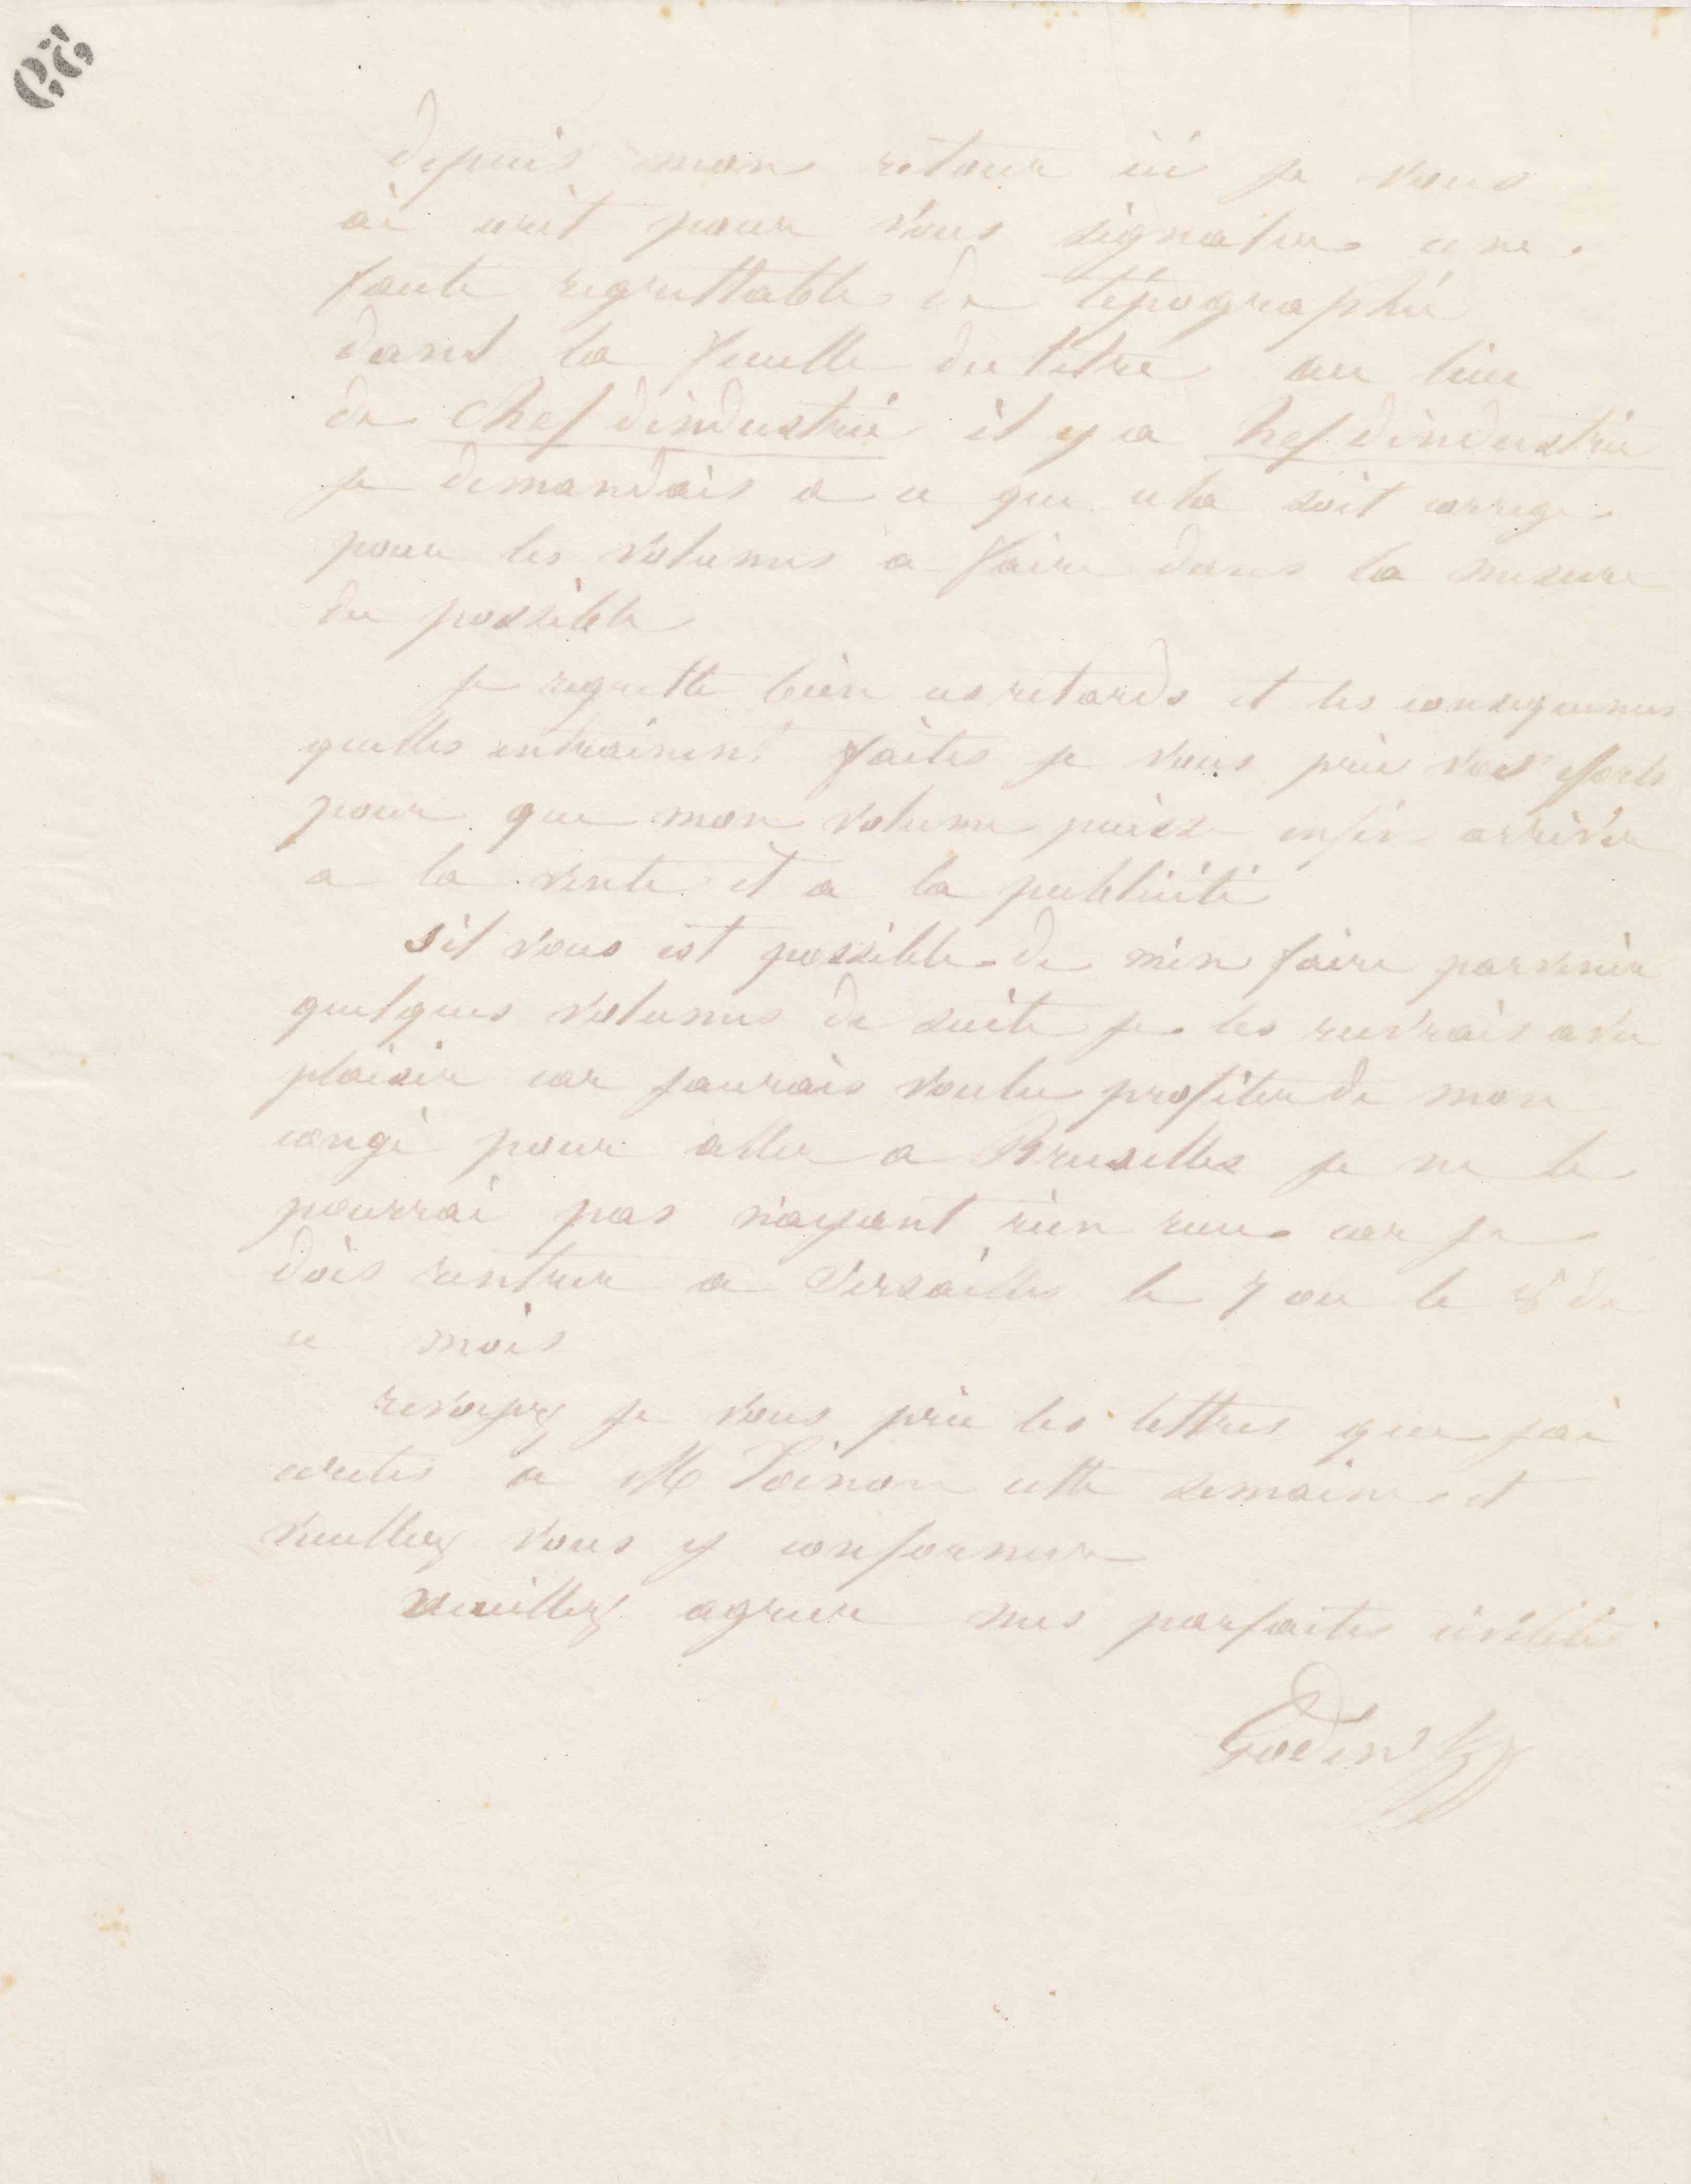 depuis mon retour ici je vous
ai ecrit pour vous signaler une
faute regrettable de tépographie
dans la feuille du titre au lieu
de chef dindustrie il y a hef dindustrie
je demandais a ce que cela soit corrigé
pour les volumes a faire dans la mesure
du possible
je regrette bien ces retards et les consequences
quelles entrainent faites je vous prie vos efforts
pour que mon volume puisse enfin arriver
a la vente et a la publicité
sil vous est possible de m'en faire parvenir
quelques volumes de suite je les recevrais avec
plaisir car jaurais voulu profiter de mon
congé pour aller a Bruxelles je ne le
pourrai pas n'ayant rien recu car je
dois rentrer a Versailles le 7 ou le 8 de
ce mois
revoyez je vous prie les lettres que jai
ecrites a M Toinon cette semaine et
veuillez vous y conformer
veuillez agreer mes parfaites civilités
Godin